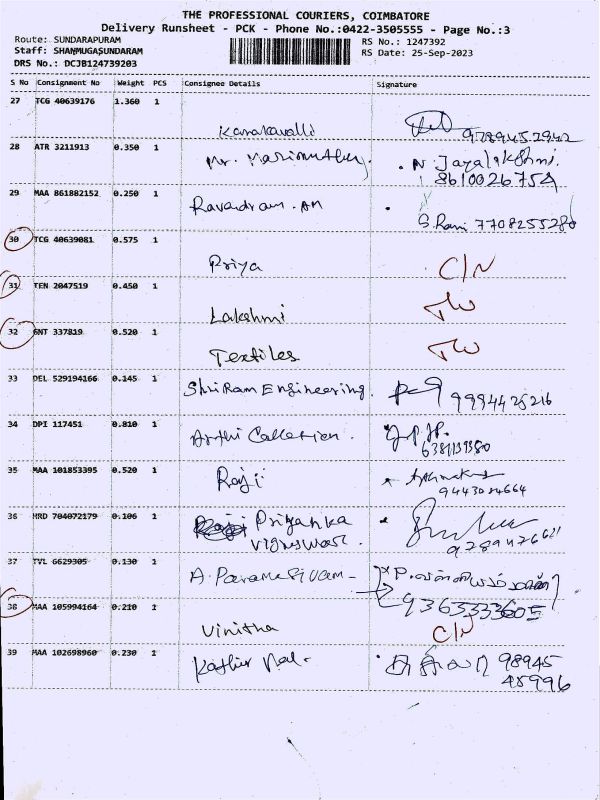 THE PROFESSIONAL COURIERS, COIMBATORE
Delivery Runsheet - PCK - Phone No.:0422-3505555 - Page No.:3
Route: SUNDARAPURAM
RS No.: 1247392
Staff: SHANMUGASUNDARAM
RS Date: 25-Sep-2023
DRS No.: DCJB124739203
S No Consignment No Weight PCS Consignee Details Signature
27 TCG 40639176 1.360 1
Kanakavalli
28 ATR 3211913 0.350 1
Mr. Marimuthu. N. Jayalakshmi
8610026754
29 MAA 861882152 0.250 1
Ravandram. AM
S. Rani 7708255280
30 TCG 40639081 0.575 1
Priya C/N
31 TEN 2047519 0.450 1
Lakshmi
32 GNT 337819 0.520 1
Textiles
33 DEL 529194166 0.145 1
ShriRam Engineering. 9994425216
34 DPI 117451 0.810 1
Arthi Collection.
35 MAA 101853395 0.520 1
Raji
9443084664
36 HRD 704072179 0.106 1
Priyanka
Vigneswari.
37 TVL 6629305 0.130 1
A. Paramasivam
9363333605
38 MAA 105994164 0.210 1
Vinitha C/N
39 MAA 102698960 0.230 1
Kathir Vel. 98945
45996